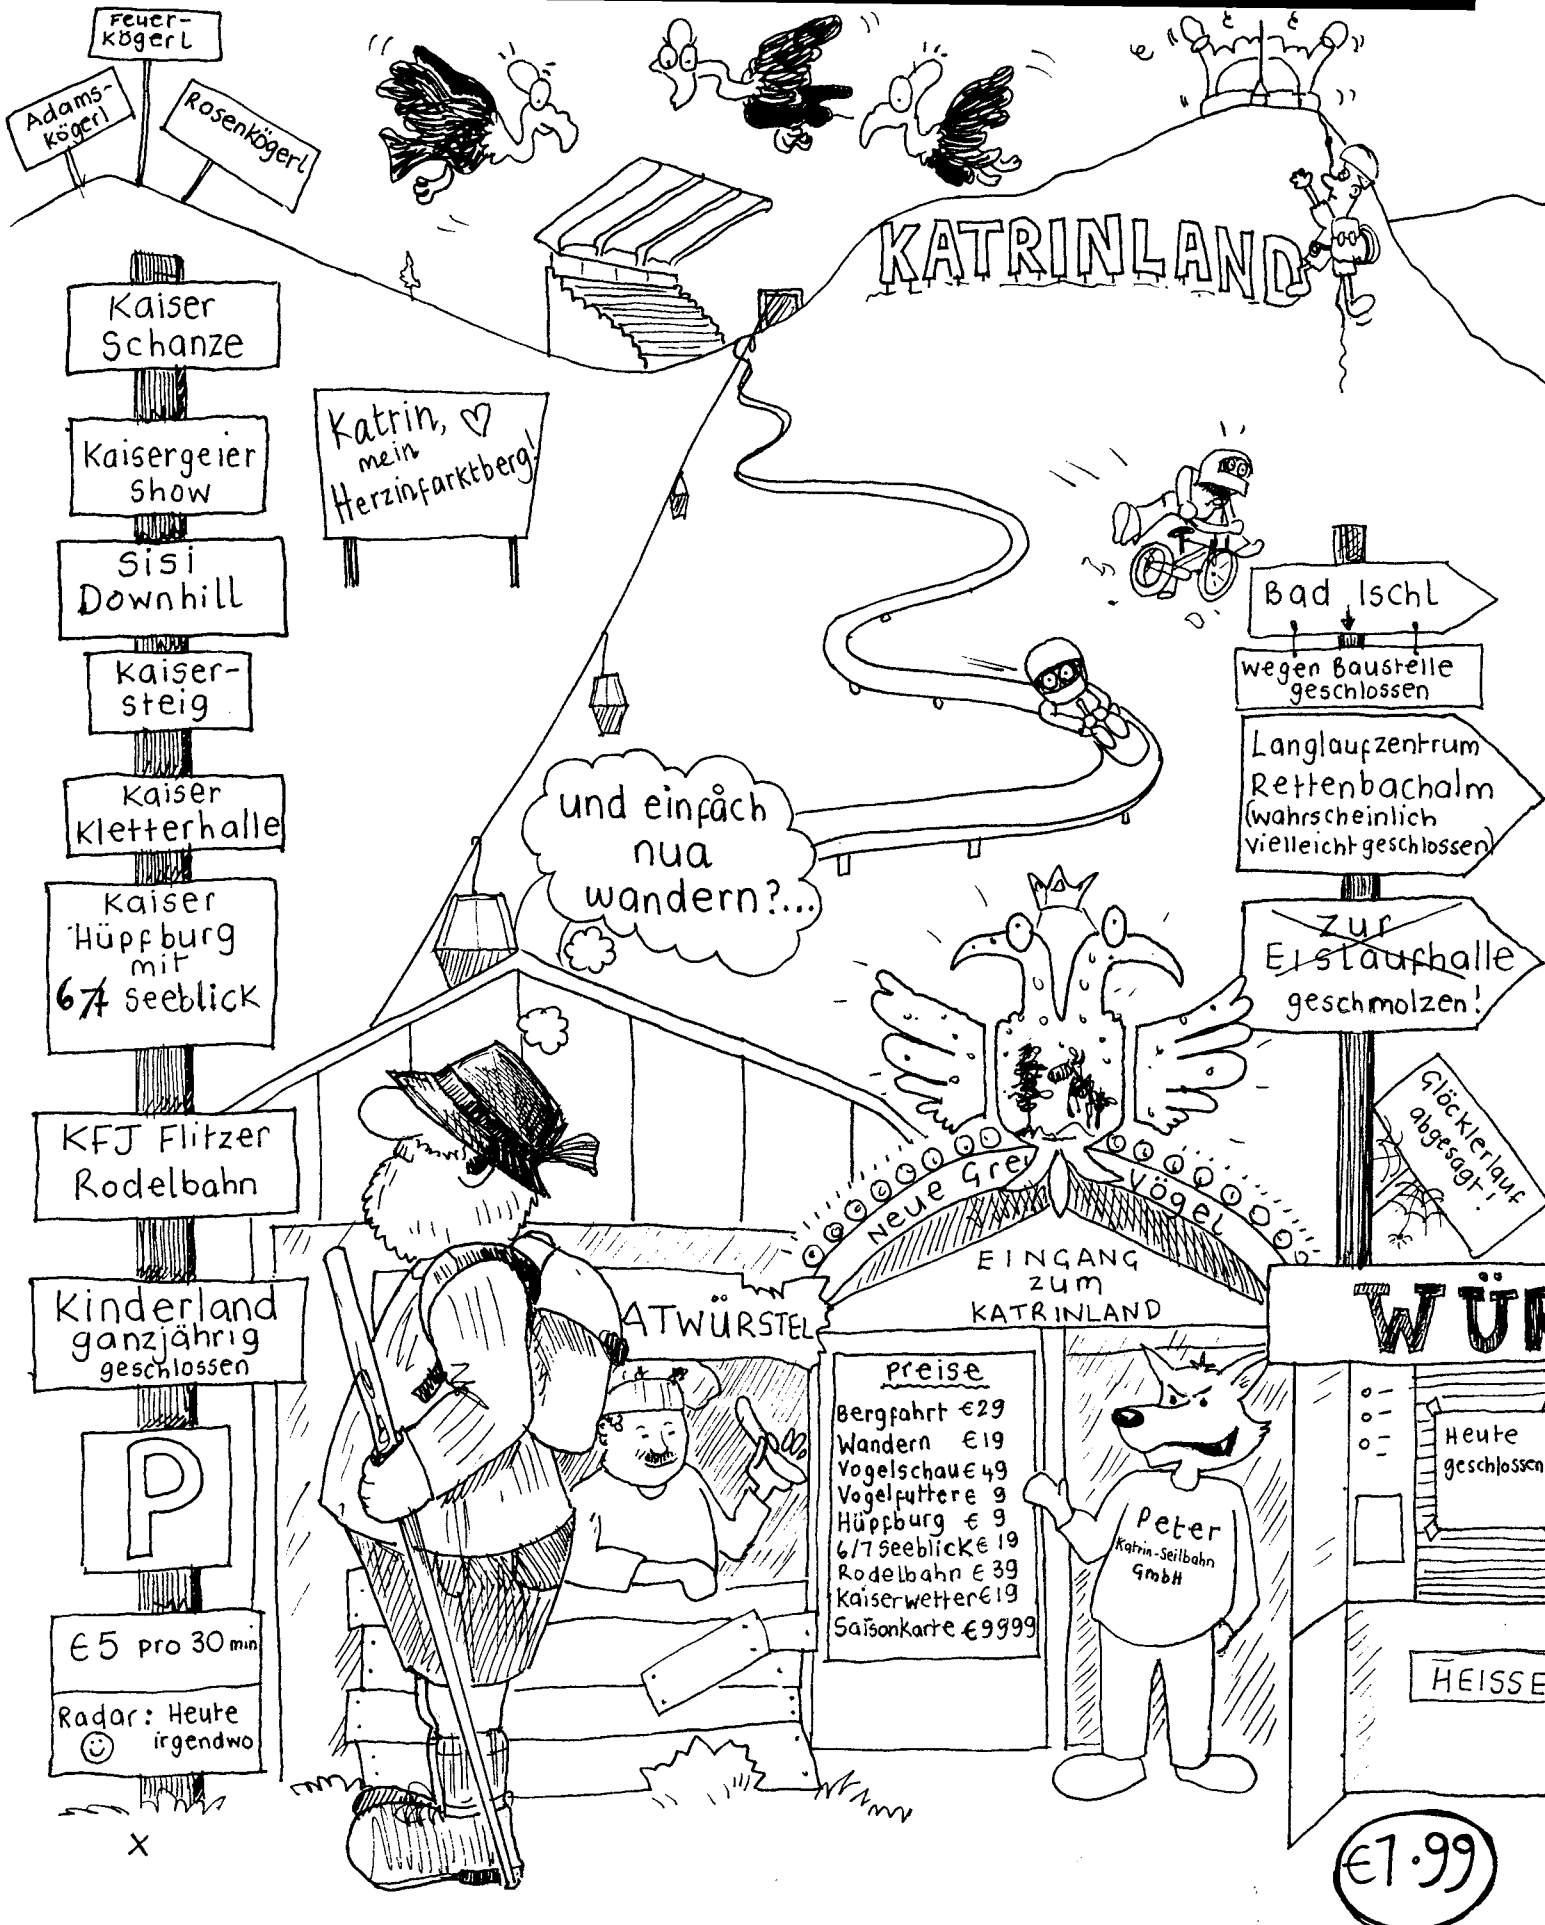 Feuer-
Kögerl
Adams-
Kögerl
Rosenkögerl
KATRINLAND
Kaiser
Schanze
Kaisergeier
Show
Sisi
Downhill
Kaiser-
steig
Kaiser
Kletterhalle
Kaiser
Hüpfburg
mit
6/7 Seeblick
KFJ Flitzer
Rodelbahn
Kinderland
ganzjährig
geschlossen
P
€5 pro 30 min
Radar: Heute
irgendwo
x
Katrin, ♡
mein
Herzinfarktberg!
und einfåch
nua
wandern?...
Bad Ischl
wegen Baustelle
geschlossen
Langlaufzentrum
Rettenbachalm
(wahrscheinlich
vielleicht geschlossen)
zur
Eislaufhalle
geschmolzen!
Glöcklerlauf
abgesagt!
Neue Grei Vögel
EINGANG
zum
KATRINLAND
ATWÜRSTEL
Preise
Bergfahrt €29
Wandern €19
Vogelschau €49
Vogelfutter € 9
Hüpfburg € 9
6/7 Seeblick € 19
Rodelbahn € 39
Kaiserwetter €19
Saisonkarte €9999
Peter
Katrin-Seilbahn
GmbH
WÜR
Heute
geschlossen
HEISSE
€1.99